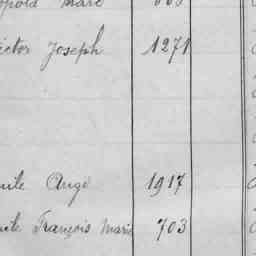 opold Marc
ictor Joseph 1271
mile Ange 1917
mile François Marie 703